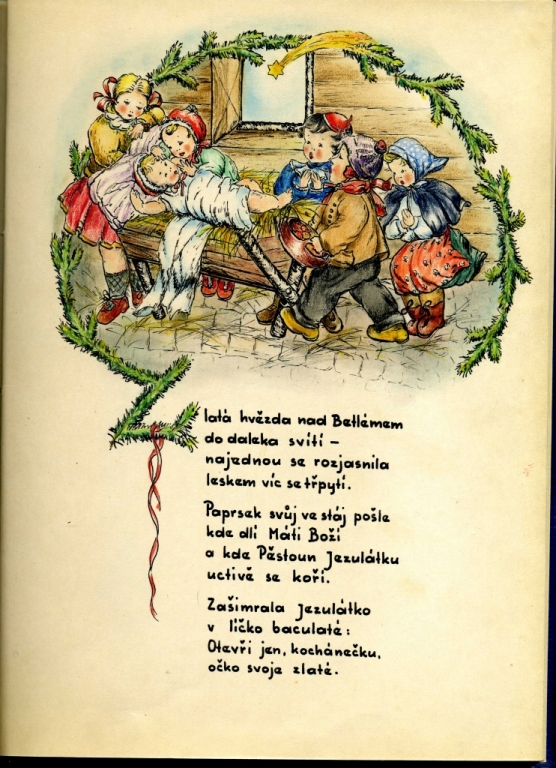 Zlatá hvězda nad Betlémem
do daleka svítí –
najednou se rozjasnila
leskem víc se třpytí.
Paprsek svůj ve stáj pošle
kde dlí Máti Boží
a kde Pěstoun Jezulátku
uctivě se koří.
Zašimrala Jezulátko
v líčko baculaté:
Otevři jen, kochánečku,
očko svoje zlaté.